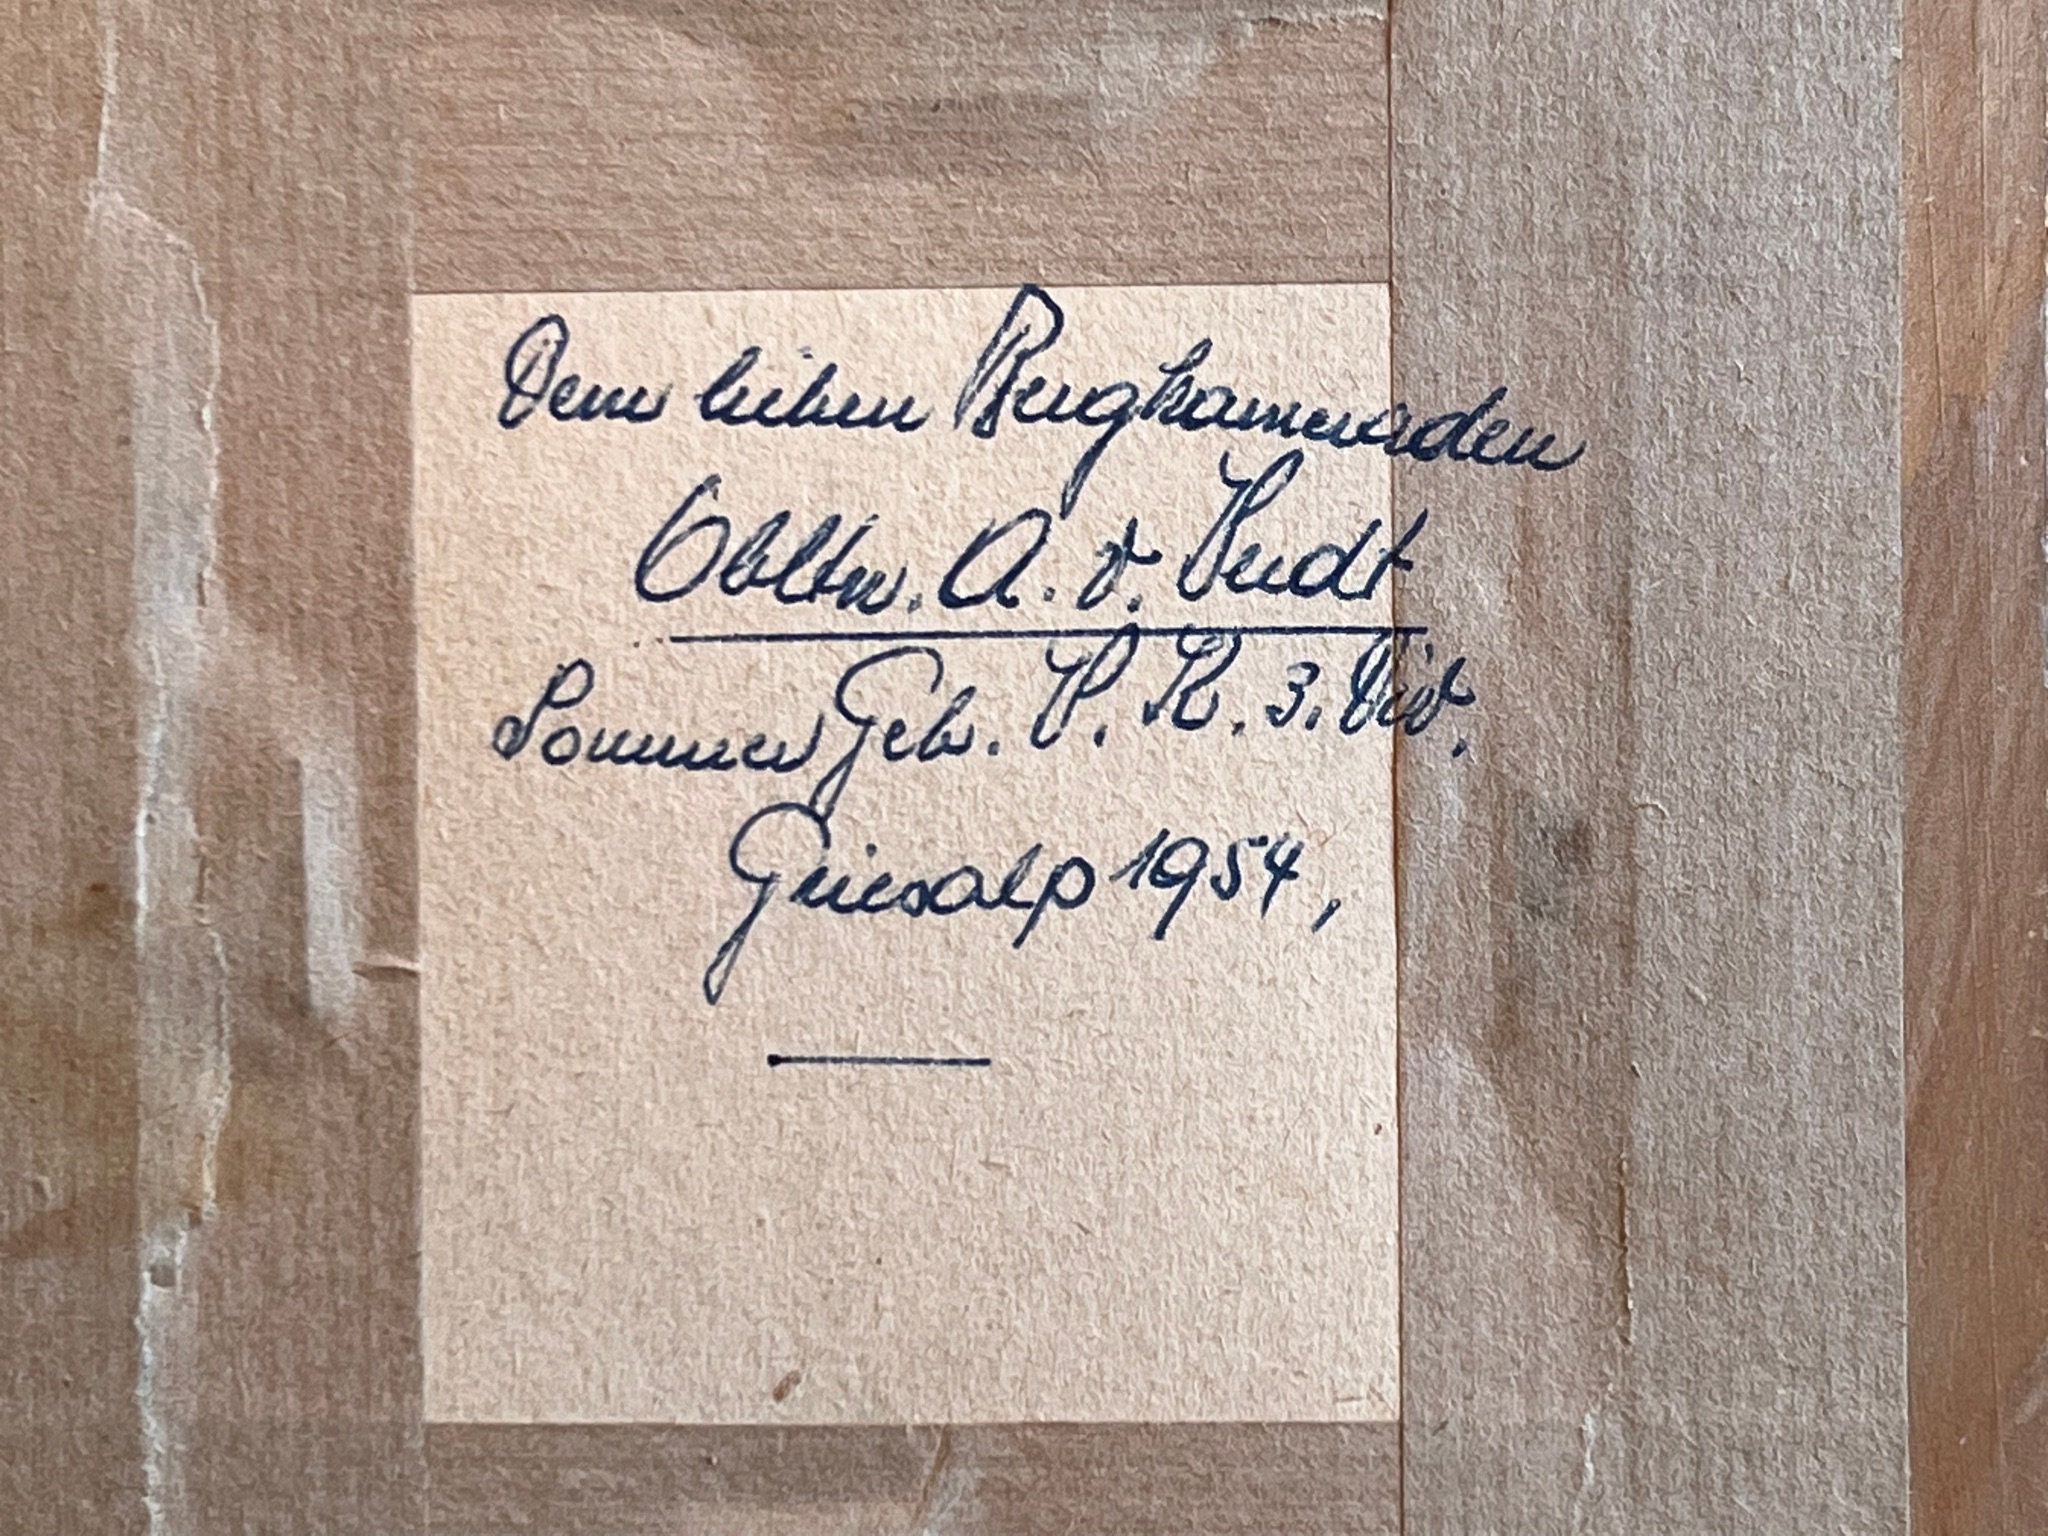 Dem lieben Bergkameraden
Obltn. A. v.
Sommer Geb. W. K. 3. Div.
Griesalp 1954,